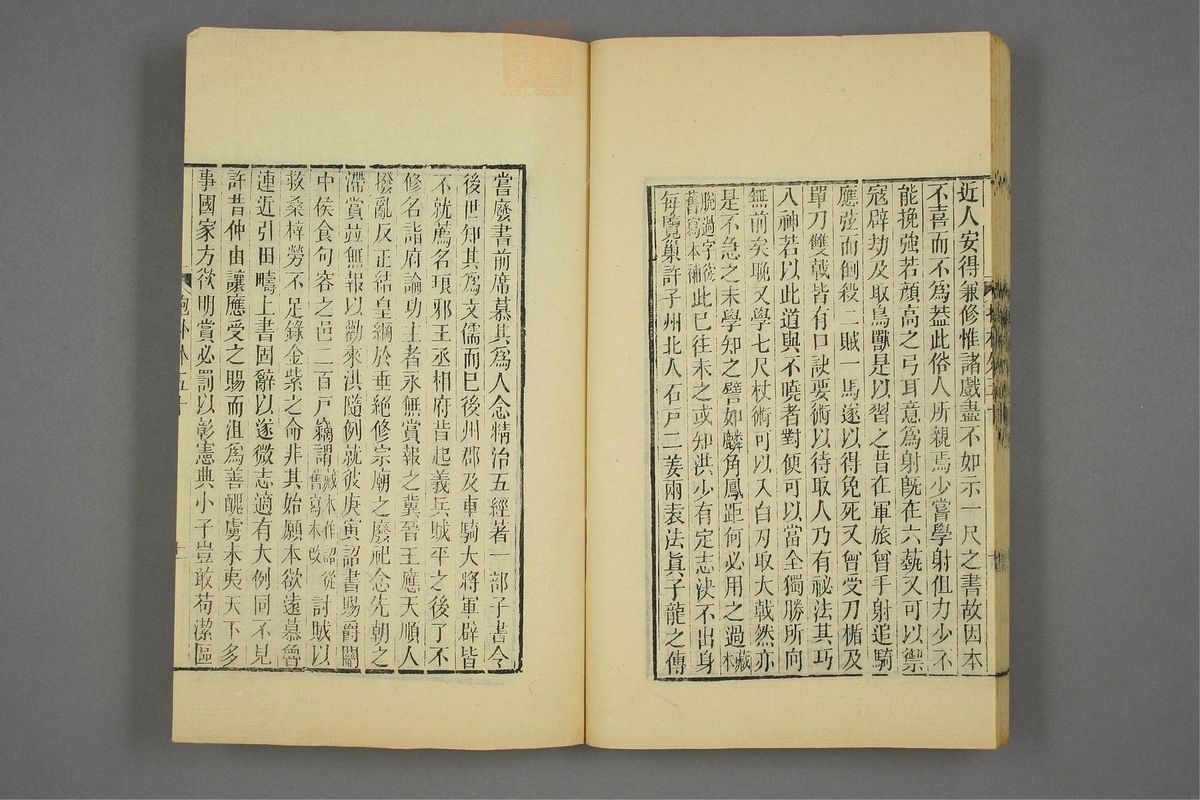 近人安得兼修惟諸戲盡不如示一尺之書故因本
不喜而不爲葢此俗人所親焉少嘗學射但力少不
能挽強若顔高之弓耳意爲射旣在六藝又可以禦
寇辟劫及取鳥獸是以習之昔在軍旅曾手射追騎
應弦而倒殺二賊一馬遂以得免死又曾受刀楯及
單刀雙戟皆有口訣要術以待取人乃有祕法其巧
入神若以此道與不曉者對便可以當全獨勝所向
無前矣晚又學七尺杖術可以入白刃取大戟然亦
是不急之末學知之譬如麟角鳳距何必用之過藏本
脫過字從舊寫本補此已往未之或知洪少有定志決不出身
每覽巢許子州北人石戸二姜兩袁法眞子龍之傳
嘗廢書前席慕其爲人念精治五經著一部子書令
後世知其爲文儒而已後州郡及車騎大將軍辟皆
不就薦名琅邪王丞相府昔起義兵賊平之後了不
修名詣府論功主者永無賞報之冀晉王應天順人
撥亂反正結皇綱於垂絕修宗廟之廢祀念先朝之
滯賞竝無報以勸來洪隨例就彼庚寅詔書賜爵關
中侯食句容之邑二百戸竊謂藏本作詔從舊寫本改討賊以
救桑梓勞不足錄金紫之命非其始願本欲遠慕魯
連近引田疇上書固辭以遂微志適有大例同不見
許昔仲由讓應受之賜而沮爲善醜虜未夷天下多
事國家方欲明賞必罰以彰憲典小子豈敢苟潔區
抱朴外五十